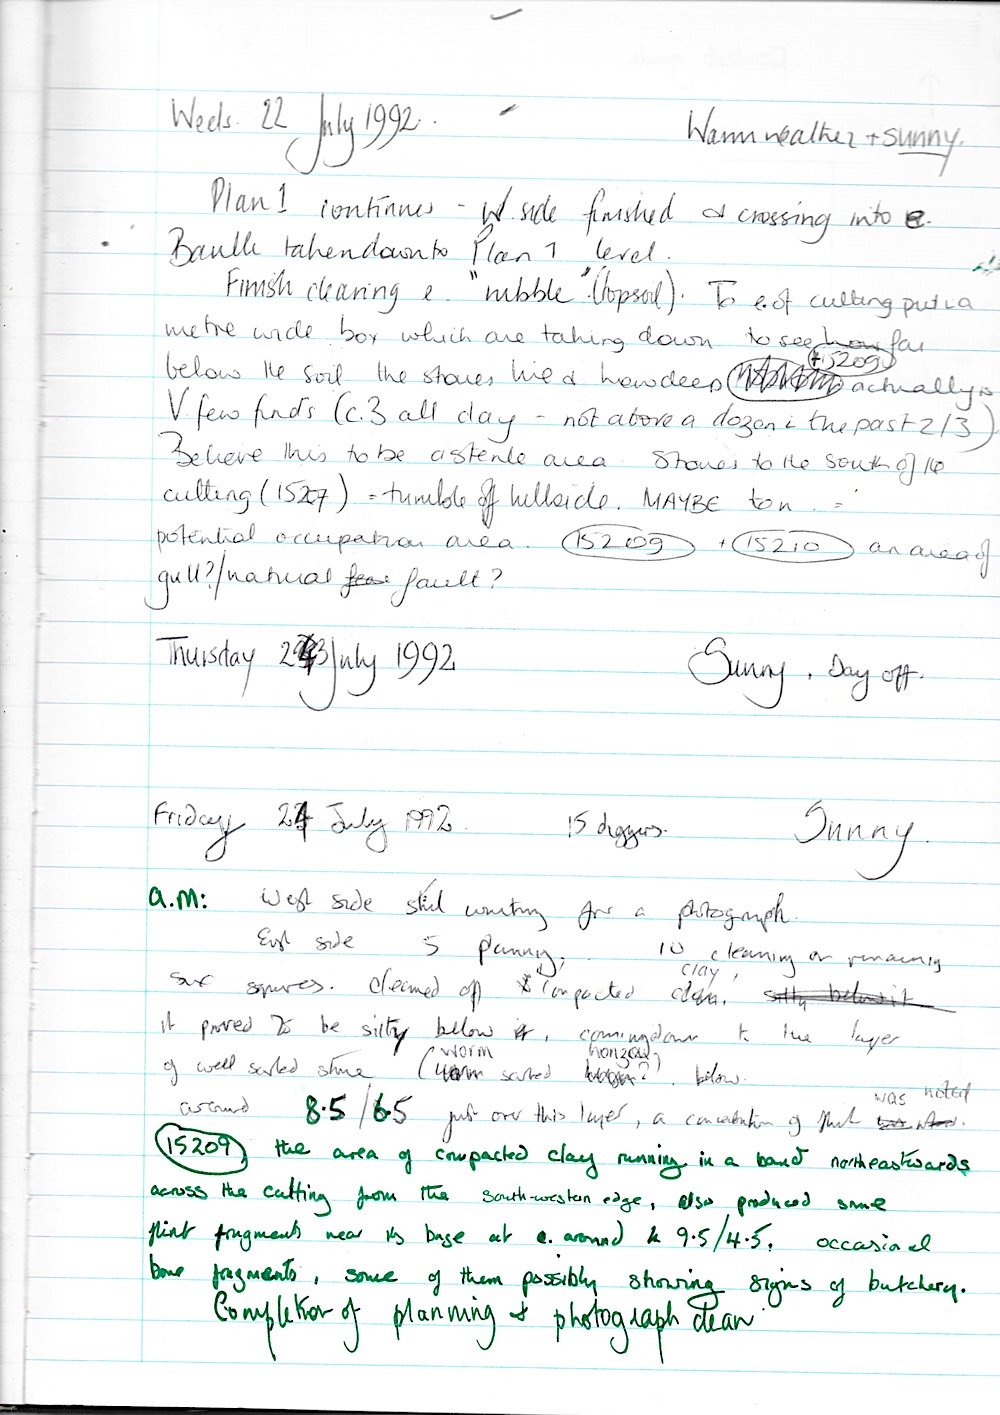 Weds. 22 July 1992. Warm weather + sunny.
Plan 1 continues - W. side finished & crossing into e.
Baulk taken down to Plan 1 level.
Finish clearing e. "rubble" (topsoil). To e. of cutting put in a
metre wide box which are taking down to see how far
+15209
below the soil the stones lie & how deep actually is
V. few finds (c.3 all day - not above a dozen in the past 2/3)
Believe this to be a sterile area. Stones to the south of the
cutting (15207) = tumble off hillside. MAYBE to n. =
potential occupation area. 15209 + 15210 an area of
gull?/natural fault?
Thursday 23 July 1992 Sunny. Day off.
Friday 24 July 1992. 15 diggers. Sunny.
a.m: West side still waiting for a photograph.
East side 5 planning, 10 cleaning or removing
clay,
squares. Cleaned off compacted silty below it
it proved to be silty below it, coming down to the layer
worm horizon?
of well sorted stone (worm sorted below.
was noted
around 8.5/6.5 just over this layer, a concentration of flint
15209, the area of compacted clay running in a band northeastwards
across the cutting from the south-western edge, also produced some
flint fragments near its base at e. around 9.5/4.5, occasional
bone fragments, some of them possibly showing signs of butchery.
Completion of planning & photograph clean